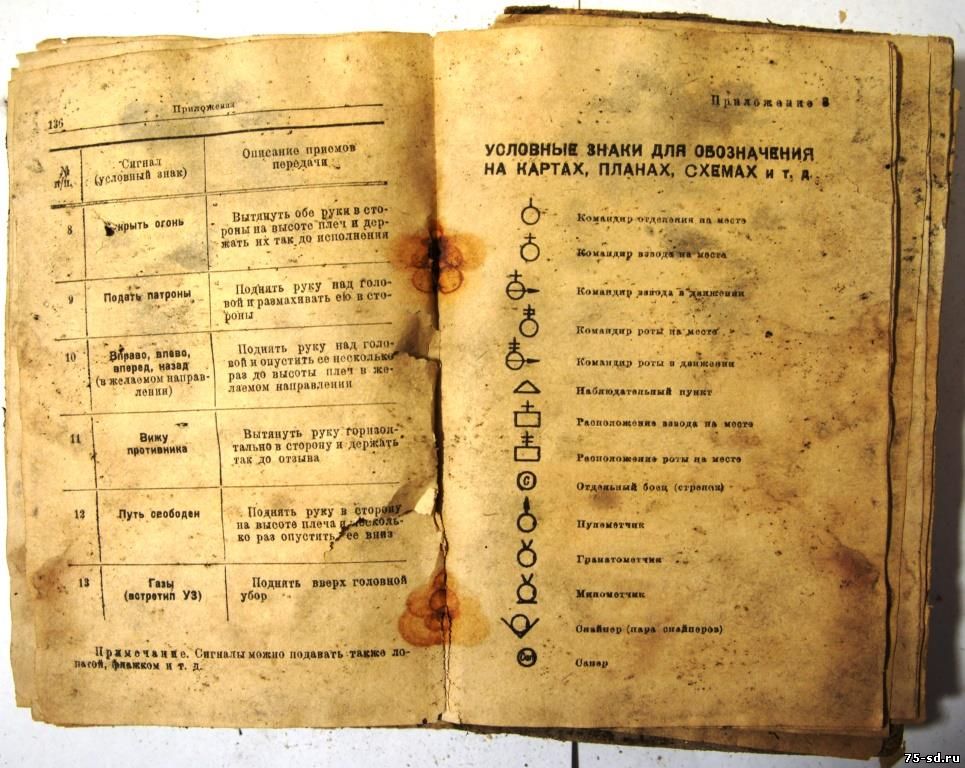 136
Приложения
№ п/п.
Сигнал
(условный знак)
Описание приемов
передачи
8
крыть огонь
Вытянуть обе руки в сто-
роны на высоте плеч и дер-
жать их так до исполнения
9
Подать патроны
Поднять руку над голо-
вой и размахивать ею в сто-
роны
10
Вправо, влево,
вперед, назад
(в желаемом направ-
лении)
Поднять руку над голо-
вой и опустить ее несколько
раз до высоты плеч в же-
лаемом направлении
11
Вижу
противника
Вытянуть руку горизон-
тально в сторону и держать
так до отзыва
12
Путь свободен
Поднять руку в сторону
на высоте плеча и несколь-
ко раз опустить ее вниз
13
Газы
(встретил УЗ)
Поднять вверх головной
убор
Примечание. Сигналы можно подавать также ло-
патой, флажком и т. д.
Приложение 3
УСЛОВНЫЕ ЗНАКИ ДЛЯ ОБОЗНАЧЕНИЯ
НА КАРТАХ, ПЛАНАХ, СХЕМАХ и т. д.
Командир отделения на месте
Командир взвода на месте
Командир взвода в движении
Командир роты на месте
Командир роты в движении
Наблюдательный пункт
Расположение взвода на месте
Расположение роты на месте
С
Отдельный боец (стрелок)
Пулеметчик
Гранатометчик
Минометчик
Снайпер (пара снайперов)
Сапер
75-sd.ru